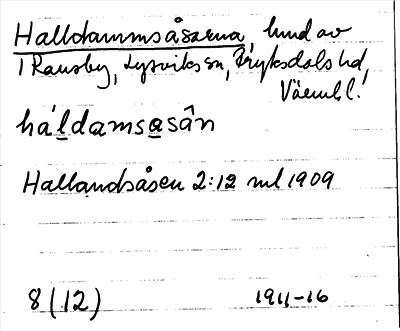 Halldammsåsarna, hmd av
1 Ransby, Lysviks sn, Fryksdals hd,
Värml l.
háldamsasân
Hallandsåsen 2:12 ml 1909
8 (12) 1911-16